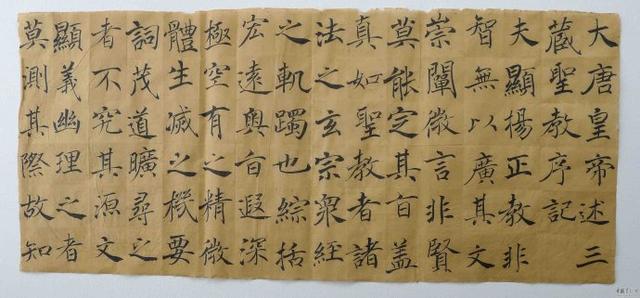 大唐皇帝述三
藏聖教序記
夫顯揚正教非
智無以廣其文
崇闡微言非賢
莫能定其旨蓋
真如聖教者諸
法之玄宗衆經
之軌躅也綜括
宏遠奧旨遐深
極空有之精微
體生滅之機要
詞茂道曠尋之
者不究其源文
顯義幽理之者
莫測其際故知